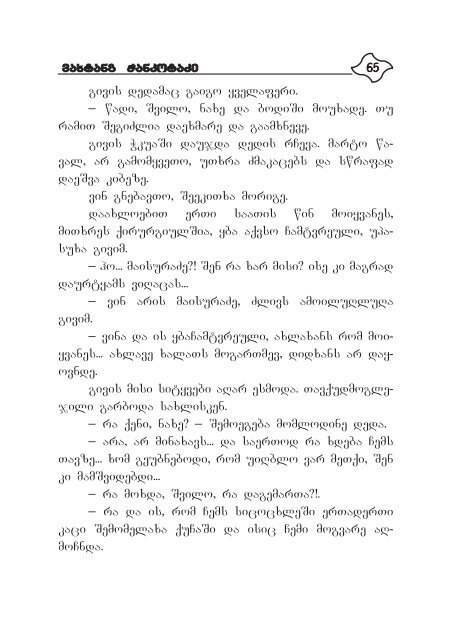 ვახტანგ ჟანკოტაძე 65
გივის დედამაც გაიგო ყველაფერი.
– წადი, შვილო, ნახე და ბოდიში მოუხადე. თუ
რამით შეგიძლია დაეხმარე და გაამხნევე.
გივის ჭკუაში დაუჯდა დედის რჩევა. მარტო წა-
ვალ, არ გამომყვეთო, უთხრა ძმაკაცებს და სწრაფად
დაეშვა კიბეზე.
ვინ გნებავთო, შეეკითხა მორიგე.
დაახლოებით ერთი საათის წინ მოიყვანეს,
მითხრეს ქირურგიულშია, ყბა აქვსო ჩამტვრეული, უპა-
სუხა გივიმ.
– ჰო... მაისურაძე?! შენ რა ხარ მისი? ისე კი მაგრად
დაურტყამს ვიღაცას...
– ვინ არის მაისურაძე, ძლივს ამოილუღლუღა
გივიმ.
– ვინა და ის ყბაჩამტვრეული, ახლახანს რომ მოი-
ყვანეს... ახლავე ხალათს მოგართმევ, დიდხანს არ დაყ-
ოვნდე.
გივის მისი სიტყვები აღარ ესმოდა. თავქუდმოგლე-
ჯილი გარბოდა სახლისკენ.
– რა ქენი, ნახე? – შემოეგება მომლოდინე დედა.
– არა, არ მინახავს... და საერთოდ რა ხდება ჩემს
თავზე... ხომ გეუბნებოდი, რომ უიღბლო ვარ მეთქი, შენ
კი მამშვიდებდი...
– რა მოხდა, შვილო, რა დაგემართა?!.
– რა და ის, რომ ჩემს სიცოცხლეში ერთადერთი
კაცი შემომელახა ქუჩაში და ისიც ჩემი მოგვარე აღ-
მოჩნდა.